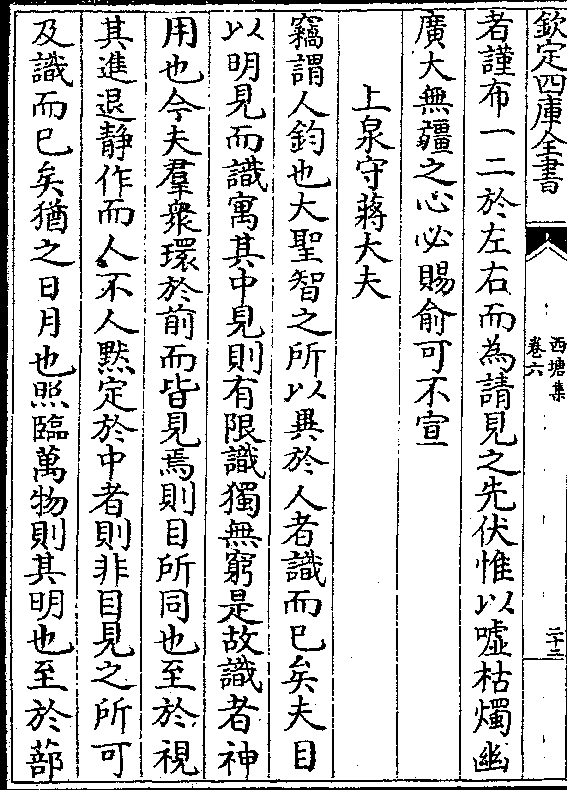 欽定四庫全書
西塘集
卷六
二十三
者謹布一二於左右而為請見之先伏惟以噓枯燭幽
廣大無疆之心必賜俞可不宣
上泉守蔣大夫
竊謂人鈞也大聖智之所以異於人者識而已矣夫目
以明見而識寓其中見則有限識獨無窮是故識者神
用也今夫羣衆環於前而皆見焉則目所同也至於視
其進退静作而人不人黙定於中者則非目見之所可
及識而已矣猶之日月也照臨萬物則其明也至於蔀